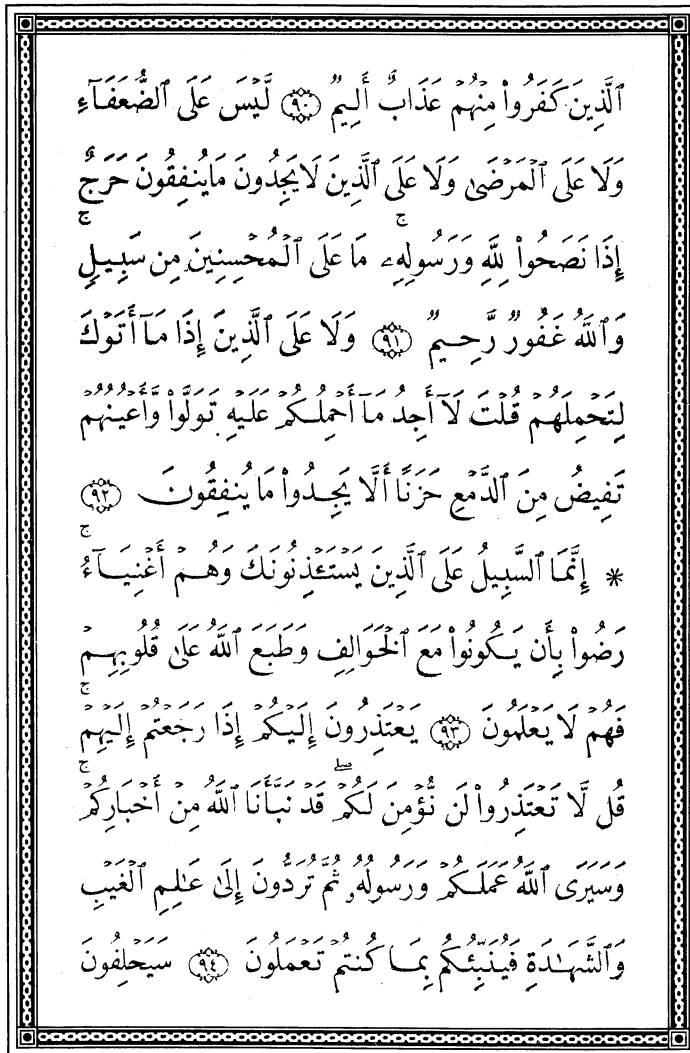 ٱلَّذِينَ كَفَرُوا۟ مِنْهُمْ عَذَابٌ أَلِيمٌ ﴿٩٠﴾ لَّيْسَ عَلَى ٱلضُّعَفَآءِ
وَلَا عَلَى ٱلْمَرْضَىٰ وَلَا عَلَى ٱلَّذِينَ لَا يَجِدُونَ مَا يُنفِقُونَ حَرَجٌ
إِذَا نَصَحُوا۟ لِلَّهِ وَرَسُولِهِۦ ۚ مَا عَلَى ٱلْمُحْسِنِينَ مِن سَبِيلٍ ۚ
وَٱللَّهُ غَفُورٌ رَّحِيمٌ ﴿٩١﴾ وَلَا عَلَى ٱلَّذِينَ إِذَا مَآ أَتَوْكَ
لِتَحْمِلَهُمْ قُلْتَ لَآ أَجِدُ مَآ أَحْمِلُكُمْ عَلَيْهِ تَوَلَّوا۟ وَّأَعْيُنُهُمْ
تَفِيضُ مِنَ ٱلدَّمْعِ حَزَنًا أَلَّا يَجِدُوا۟ مَا يُنفِقُونَ ﴿٩٢﴾
* إِنَّمَا ٱلسَّبِيلُ عَلَى ٱلَّذِينَ يَسْتَـْٔذِنُونَكَ وَهُمْ أَغْنِيَآءُ ۚ
رَضُوا۟ بِأَن يَكُونُوا۟ مَعَ ٱلْخَوَالِفِ وَطَبَعَ ٱللَّهُ عَلَىٰ قُلُوبِهِمْ
فَهُمْ لَا يَعْلَمُونَ ﴿٩٣﴾ يَعْتَذِرُونَ إِلَيْكُمْ إِذَا رَجَعْتُمْ إِلَيْهِمْ ۚ
قُل لَّا تَعْتَذِرُوا۟ لَن نُّؤْمِنَ لَكُمْ ۖ قَدْ نَبَّأَنَا ٱللَّهُ مِنْ أَخْبَارِكُمْ ۚ
وَسَيَرَى ٱللَّهُ عَمَلَكُمْ وَرَسُولُهُۥ ثُمَّ تُرَدُّونَ إِلَىٰ عَـٰلِمِ ٱلْغَيْبِ
وَٱلشَّهَـٰدَةِ فَيُنَبِّئُكُم بِمَا كُنتُمْ تَعْمَلُونَ ﴿٩٤﴾ سَيَحْلِفُونَ